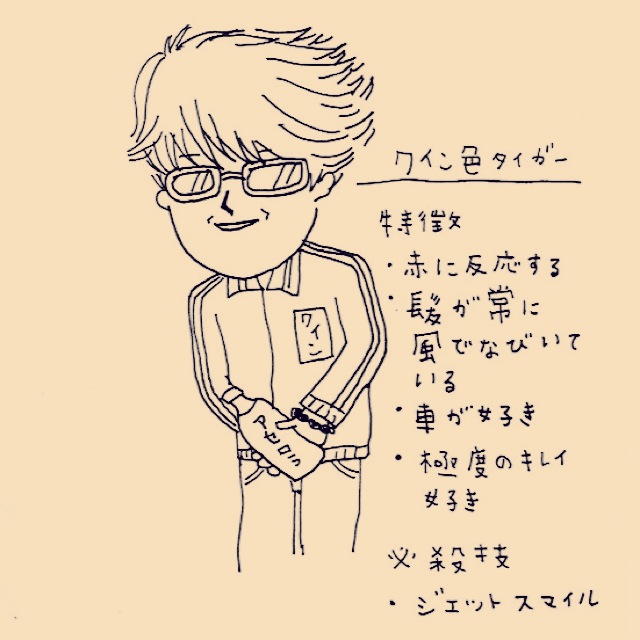 ワイン色タイガー
特徴
・赤に反応する
・髪が常に
風でなびいて
いる
・車が好き
・極度のキレイ
好き
必殺技
・ジェットスマイル
ワイン
アセロラ